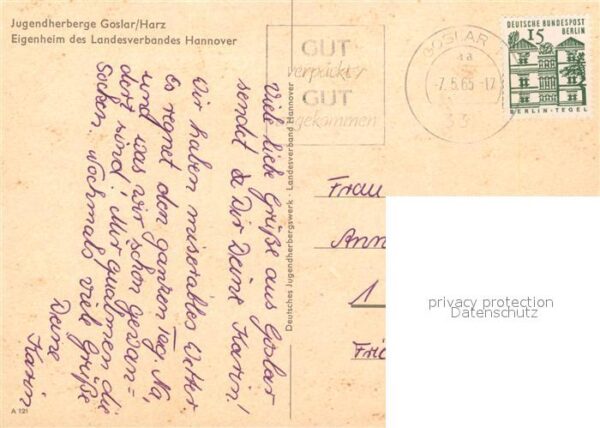 Jugendherberge Goslar/Harz
Eigenheim des Landesverbandes Hannover
Viele liebe Grüße aus Goslar
sendet Dir Deine Karin!
Wir haben miserables Wetter
Es regnet den ganzen Tag. Na,
und was wir schon gewan=
dert sind! Mir qualmen die
Socken. Nochmals viele Grüße
Deine
Karin
A 121
Deutsches Jugendherbergswerk · Landesverband Hannover
GUT
verpackt,
GUT
angekommen
GOSLAR
-7.5.65-17
DEUTSCHE BUNDESPOST
15 BERLIN
BERLIN-TEGEL
Frau
Ann
1
Frie
privacy protection
Datenschutz